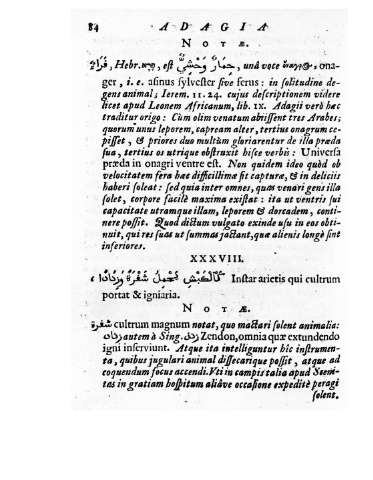 84 ADAGIA
NOTÆ.
فرأ, Hebr. פרא, est حمار وحشي, unâ voce ona-
ger, i. e. asinus sylvester sive ferus: in solitudine de-
gens animal; Ierem. 11. 24. cujus descriptionem videre
licet apud Leonem Africanum, lib. IX. Adagii verò hæc
traditur origo: Cùm olim venatum abiissent tres Arabes;
quorum unus leporem, capream alter, tertius onagrum ce-
pisset, & priores duo multùm gloriarentur de illa præda
sua, tertius os utrique obstruxit hisce verbis: Universa
præda in onagri ventre est. Non quidem ideo quòd ob
velocitatem fera hæc difficillimæ sit capturæ, & in deliciis
haberi soleat: sed quia inter omnes, quas venari gens illa
solet, corpore facilè maxima existat: ita ut ventris sui
capacitate utramque illam, leporem & dorcadem, conti-
nere possit. Quod dictum vulgato exinde usu in eos obti-
nuit, qui res suas ut summas jactant, quæ alienis longè sint
inferiores.
XXXVIII.
كالكبش تحمل شفرة وزنادا Instar arietis qui cultrum
portat & igniaria.
NOTÆ.
شفرة cultrum magnum notat, quo mactari solent animalia:
زناد autem à Sing. زند Zendon, omnia quæ extundendo
igni inserviunt. Atque ita intelliguntur hîc instrumen-
ta, quibus jugulari animal dissecarique possit, atque ad
coquendum focus accendi. Vti in campis talia apud Sceni-
tas in gratiam hospitum aliâve occasione expeditè peragi
solent.